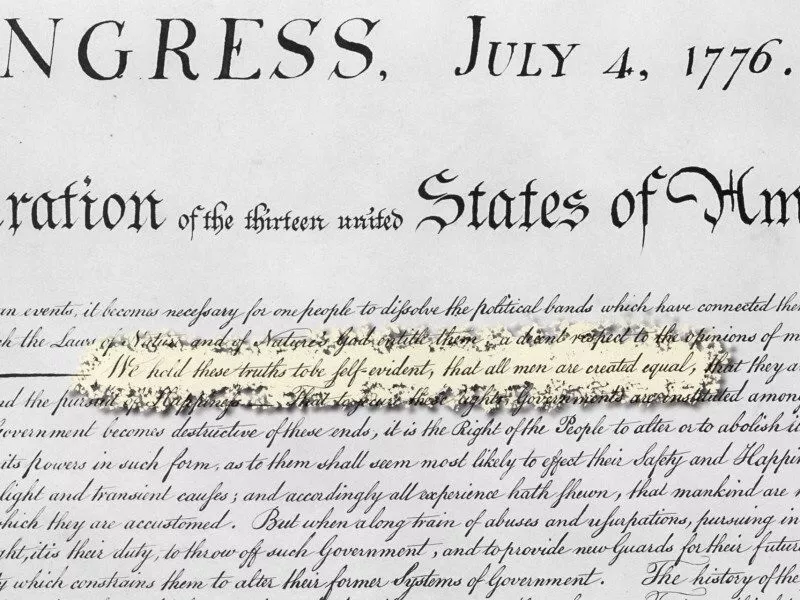 NGRESS, JULY 4, 1776.
ration of the thirteen united States of Am
an events, it becomes necessary for one people to dissolve the political bands which have connected them
h the Laws of Nature and of Nature's God entitle them, a decent respect to the opinions of m
We hold these truths to be self-evident, that all men are created equal, that they ar
nd the pursuit of Happiness.— That to secure these rights, Governments are instituted among
Government becomes destructive of these ends, it is the Right of the People to alter or to abolish it
its powers in such form, as to them shall seem most likely to effect their Safety and Happin
light and transient causes; and accordingly all experience hath shewn, that mankind are
hich they are accustomed. But when a long train of abuses and usurpations, pursuing in
ght, it is their duty, to throw off such Government, and to provide new Guards for their future
ty which constrains them to alter their former Systems of Government. The history of the